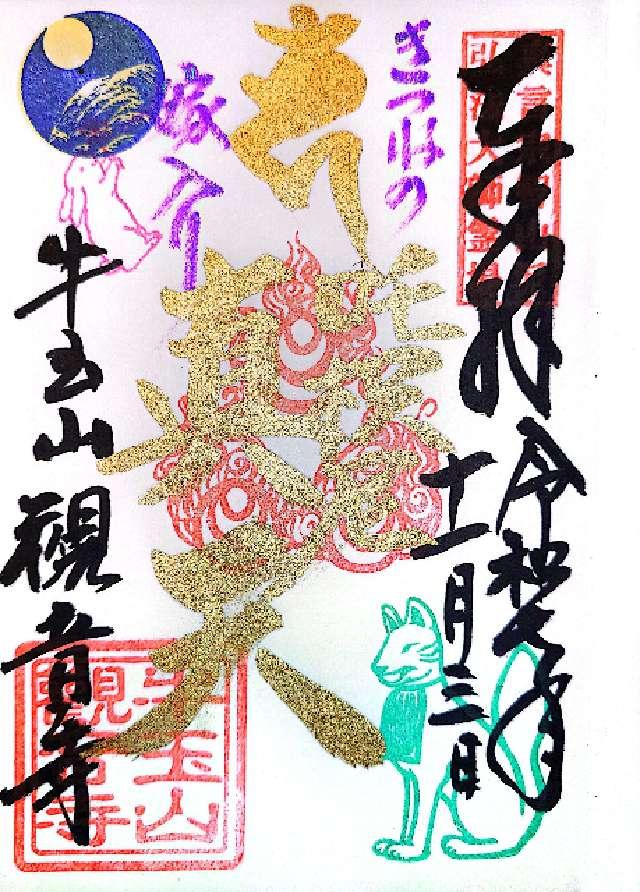 奉拝
令和七年
十一月三日
きつねの
嫁入り
吒枳尼
真天
牛玉山
観音寺
牛玉山
観音寺